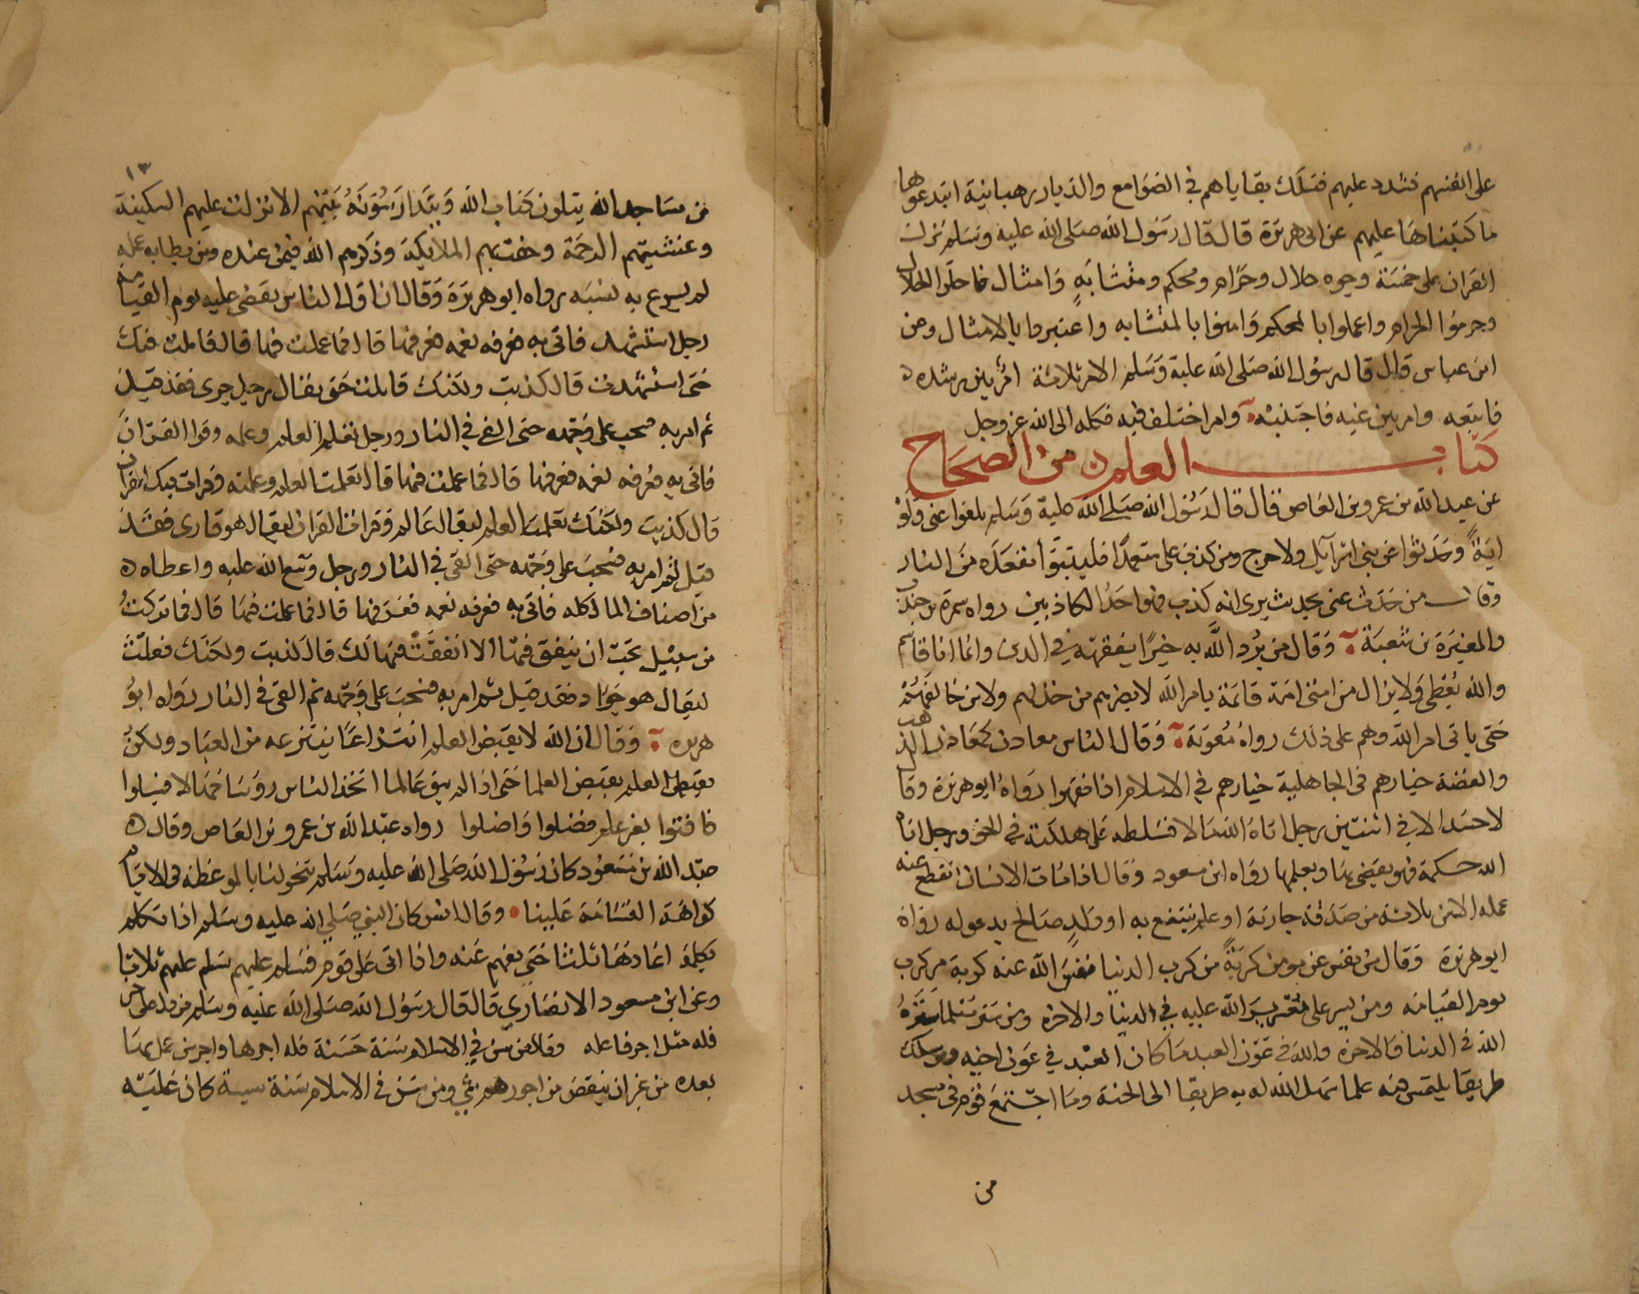 على انفسهم فشدد عليهم فتلك بقاياهم في الصوامع والديار رهبانية ابتدعوها
ما كتبناها عليهم عن ابي هريرة قال قال رسول الله صلى الله عليه وسلم نزل
القران على خمسة وجوه حلال وحرام ومحكم ومتشابه وامثال فاحلوا الحلال
وحرموا الحرام واعملوا بالمحكم وامنوا بالمتشابه واعتبروا بالامثال وعن
ابن عباس قال قال رسول الله صلى الله عليه وسلم الامر ثلاثة امر بين رشده
فاتبعه وامر بين غيه فاجتنبه وامر اختلف فيه فكله الى الله عز وجل
كتاب العلم من الصحاح
عن عبد الله بن عمرو بن العاص قال قال رسول الله صلى الله عليه وسلم بلغوا عني ولو
اية وحدثوا عن بني اسرائيل ولا حرج ومن كذب علي متعمدا فليتبوا مقعده من النار
وقال من حدث عني بحديث يرى انه كذب فهو احد الكاذبين رواه سمرة بن جندب
والمغيرة بن شعبة وقال من يرد الله به خيرا يفقهه في الدين وانما انا قاسم
والله يعطي ولا يزال من امتي امة قائمة بامر الله لا يضرهم من خذلهم ولا من خالفهم
حتى ياتي امر الله وهم على ذلك رواه معوية وقال الناس معادن كمعادن الذهب
والفضة خيارهم في الجاهلية خيارهم في الاسلام اذا فقهوا رواه ابو هريرة وقا
لا حسد الا في اثنتين رجل اتاه الله مالا فسلطه على هلكته في الحق ورجل اتاه
الله حكمة فهو يقضي بها ويعلمها رواه ابن مسعود وقال اذا مات الانسان انقطع عنه
عمله الا من ثلاثة من صدقة جارية او علم ينتفع به او ولد صالح يدعو له رواه
ابو هريرة وقال من نفس عن مومن كربة من كرب الدنيا نفس الله عنه كربة من كرب
يوم القيامه ومن يسر على معسر يسر الله عليه في الدنيا والاخره ومن ستر مسلما ستره
الله في الدنيا والاخره والله في عون العبد ما كان العبد في عون اخيه ومن سلك
طريقا يلتمس فيه علما سهل الله له به طريقا الى الجنة وما اجتمع قوم في مسجد
من
١٣
من مساجد الله يتلون كتاب الله ويتدارسونه بينهم الا نزلت عليهم السكينة
وغشيتهم الرحمة وحفت بهم الملايكة وذكرهم الله فيمن عنده ومن بطا به عمله
لم يسرع به نسبه رواه ابو هريرة وقال ان اول الناس يقضى عليه يوم القيامة
رجل استشهد فاتي به فعرفه نعمه فعرفها قال فما عملت فيها قال قاتلت فيك
حتى استشهدت قال كذبت ولكنك قاتلت حتى يقال رجل جري فقد قيل
ثم امر به فسحب على وجهه حتى القي في النار ورجل تعلم العلم وعلمه وقرا القران
فاتي به فعرفه نعمه فعرفها قال فما عملت فيها قال تعلمت العلم وعلمته وقرات فيك القران
قال كذبت ولكنك تعلمت العلم ليقال عالم وقرات القران ليقال هو قاري فقد
قيل ثم امر به فسحب على وجهه حتى القي في النار ورجل وسع الله عليه واعطاه
من اصناف المال كله فاتي به فعرفه نعمه فعرفها قال فما عملت فيها قال فما تركت
من سبيل تحب ان ينفق فيها الا انفقت فيها لك قال كذبت ولكنك فعلت
ليقال هو جواد فقد قيل ثم امر به فسحب على وجهه ثم القي في النار رواه ابو
هريرة وقال ان الله لا يقبض العلم انتزاعا ينتزعه من العباد ولكن
يقبض العلم بقبض العلما حتى اذا لم يبق عالما اتخذ الناس روسا جهالا فسيلوا
فافتوا بغير علم فضلوا واضلوا رواه عبد الله بن عمرو بن العاص وقال
عبد الله بن مسعود كان رسول الله صلى الله عليه وسلم يتخولنا بالموعظة في الايام
كراهة السامة علينا وقال انس كان النبي صلى الله عليه وسلم اذا تكلم
بكلمة اعادها ثلثا حتى تفهم عنه واذا اتى على قوم فسلم عليهم سلم عليهم ثلاثا
وعن ابن مسعود الانصاري قال قال رسول الله صلى الله عليه وسلم من دل على خير
فله مثل اجر فاعله وقال من سن في الاسلام سنة حسنة فله اجرها واجر من عمل بها
بعده من غير ان ينقص من اجورهم شي ومن سن في الاسلام سنة سيية كان عليه